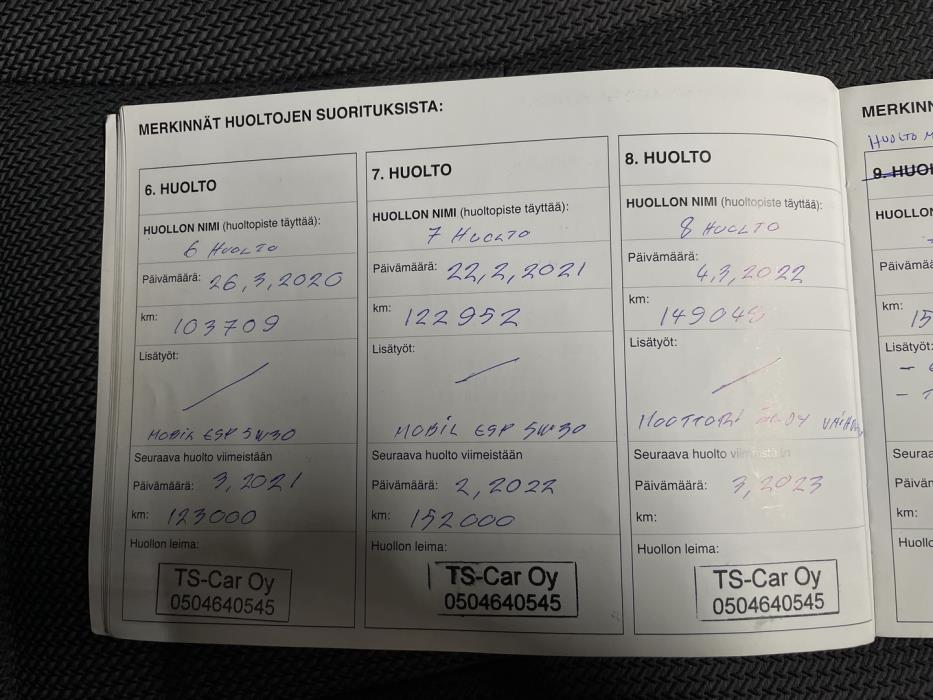 MERKINNÄT HUOLTOJEN SUORITUKSISTA:
6. HUOLTO
HUOLLON NIMI (huoltopiste täyttää):
6 HUOLTO
Päivämäärä: 26,3,2020
km: 103709
Lisätyöt:
MOBIL ESP 5W30
Seuraava huolto viimeistään
Päivämäärä: 3,2021
km: 123000
Huollon leima:
TS-Car Oy
0504640545
7. HUOLTO
HUOLLON NIMI (huoltopiste täyttää):
7 HUOLTO
Päivämäärä: 22,2,2021
km: 122952
Lisätyöt:
MOBIL ESP 5W30
Seuraava huolto viimeistään
Päivämäärä: 2,2022
km: 152000
Huollon leima:
TS-Car Oy
0504640545
8. HUOLTO
HUOLLON NIMI (huoltopiste täyttää):
8 HUOLTO
Päivämäärä:
4,3,2022
km:
149048
Lisätyöt:
MOOTTORI
Seuraava huolto viimeistään
Päivämäärä: 3,2023
km:
Huollon leima:
TS-Car Oy
0504640545
MERKINN
HUOLTO M
9. HUOL
HUOLLON
Päivämää
km:
15
Lisätyöt:
Seuraa
Päivän
km:
Huollo